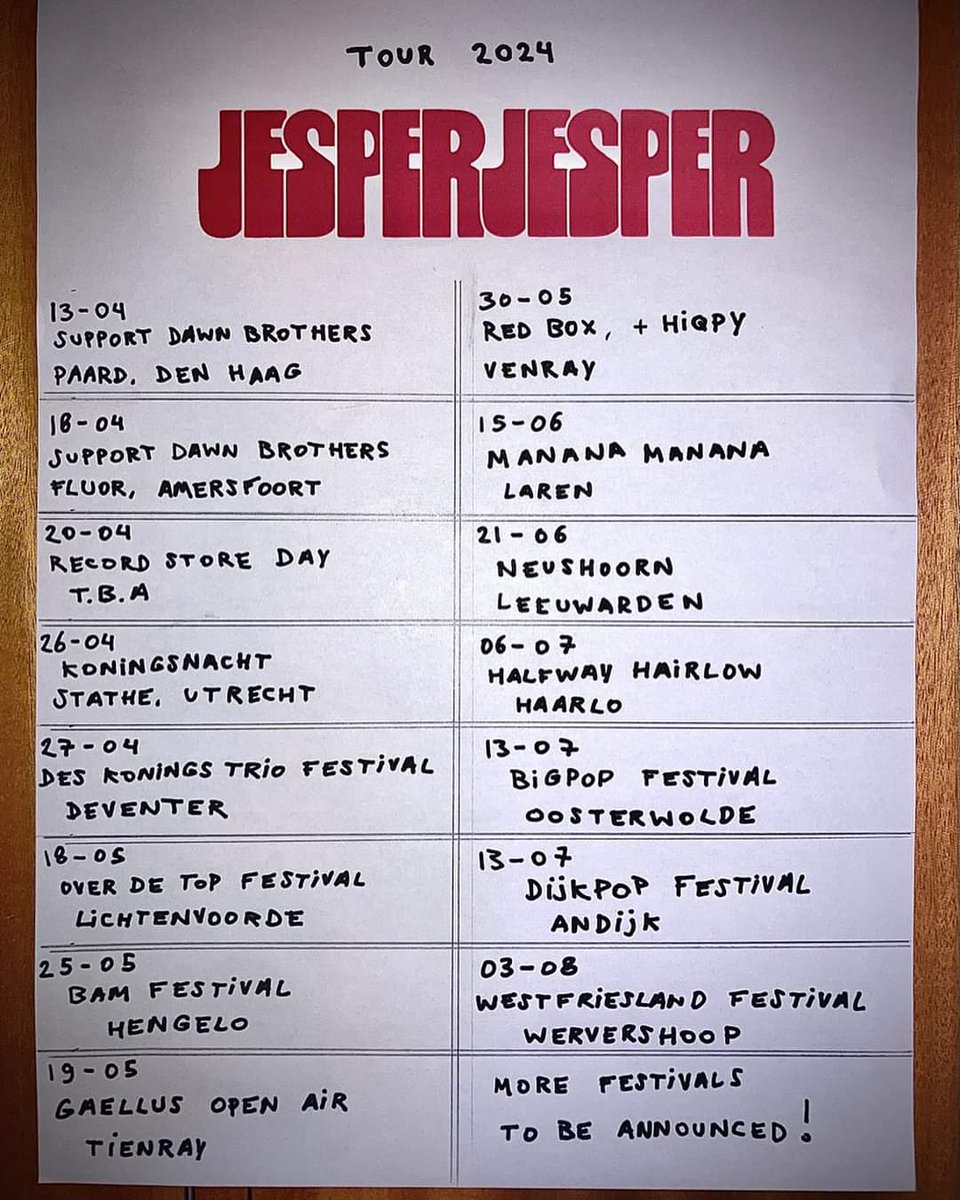 TOUR 2024
JESPERJESPER
13-04
SUPPORT DAWN BROTHERS
PAARD, DEN HAAG
18-04
SUPPORT DAWN BROTHERS
FLUOR, AMERSFOORT
20-04
RECORD STORE DAY
T.B.A
26-04
KONINGSNACHT
STATHE, UTRECHT
27-04
DES KONINGS TRiO FESTiVAL
DEVENTER
18-05
OVER DE TOP FESTiVAL
LiCHTENVOORDE
25-05
BAM FESTiVAL
HENGELO
19-05
GAELLUS OPEN AiR
TiENRAY
30-05
RED BOX, + HiQPY
VENRAY
15-06
MANANA MANANA
LAREN
21-06
NEUSHOORN
LEEUWARDEN
06-07
HALFWAY HAiRLOW
HAARLO
13-07
BiGPOP FESTiVAL
OOSTERWOLDE
13-07
DijKPOP FESTiVAL
ANDijK
03-08
WESTFRiESLAND FESTiVAL
WERVERSHOOP
MORE FESTiVALS
TO BE ANNOUNCED!